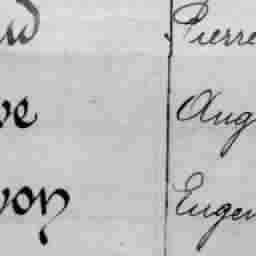 Pierre
ve Aug
von Eugen